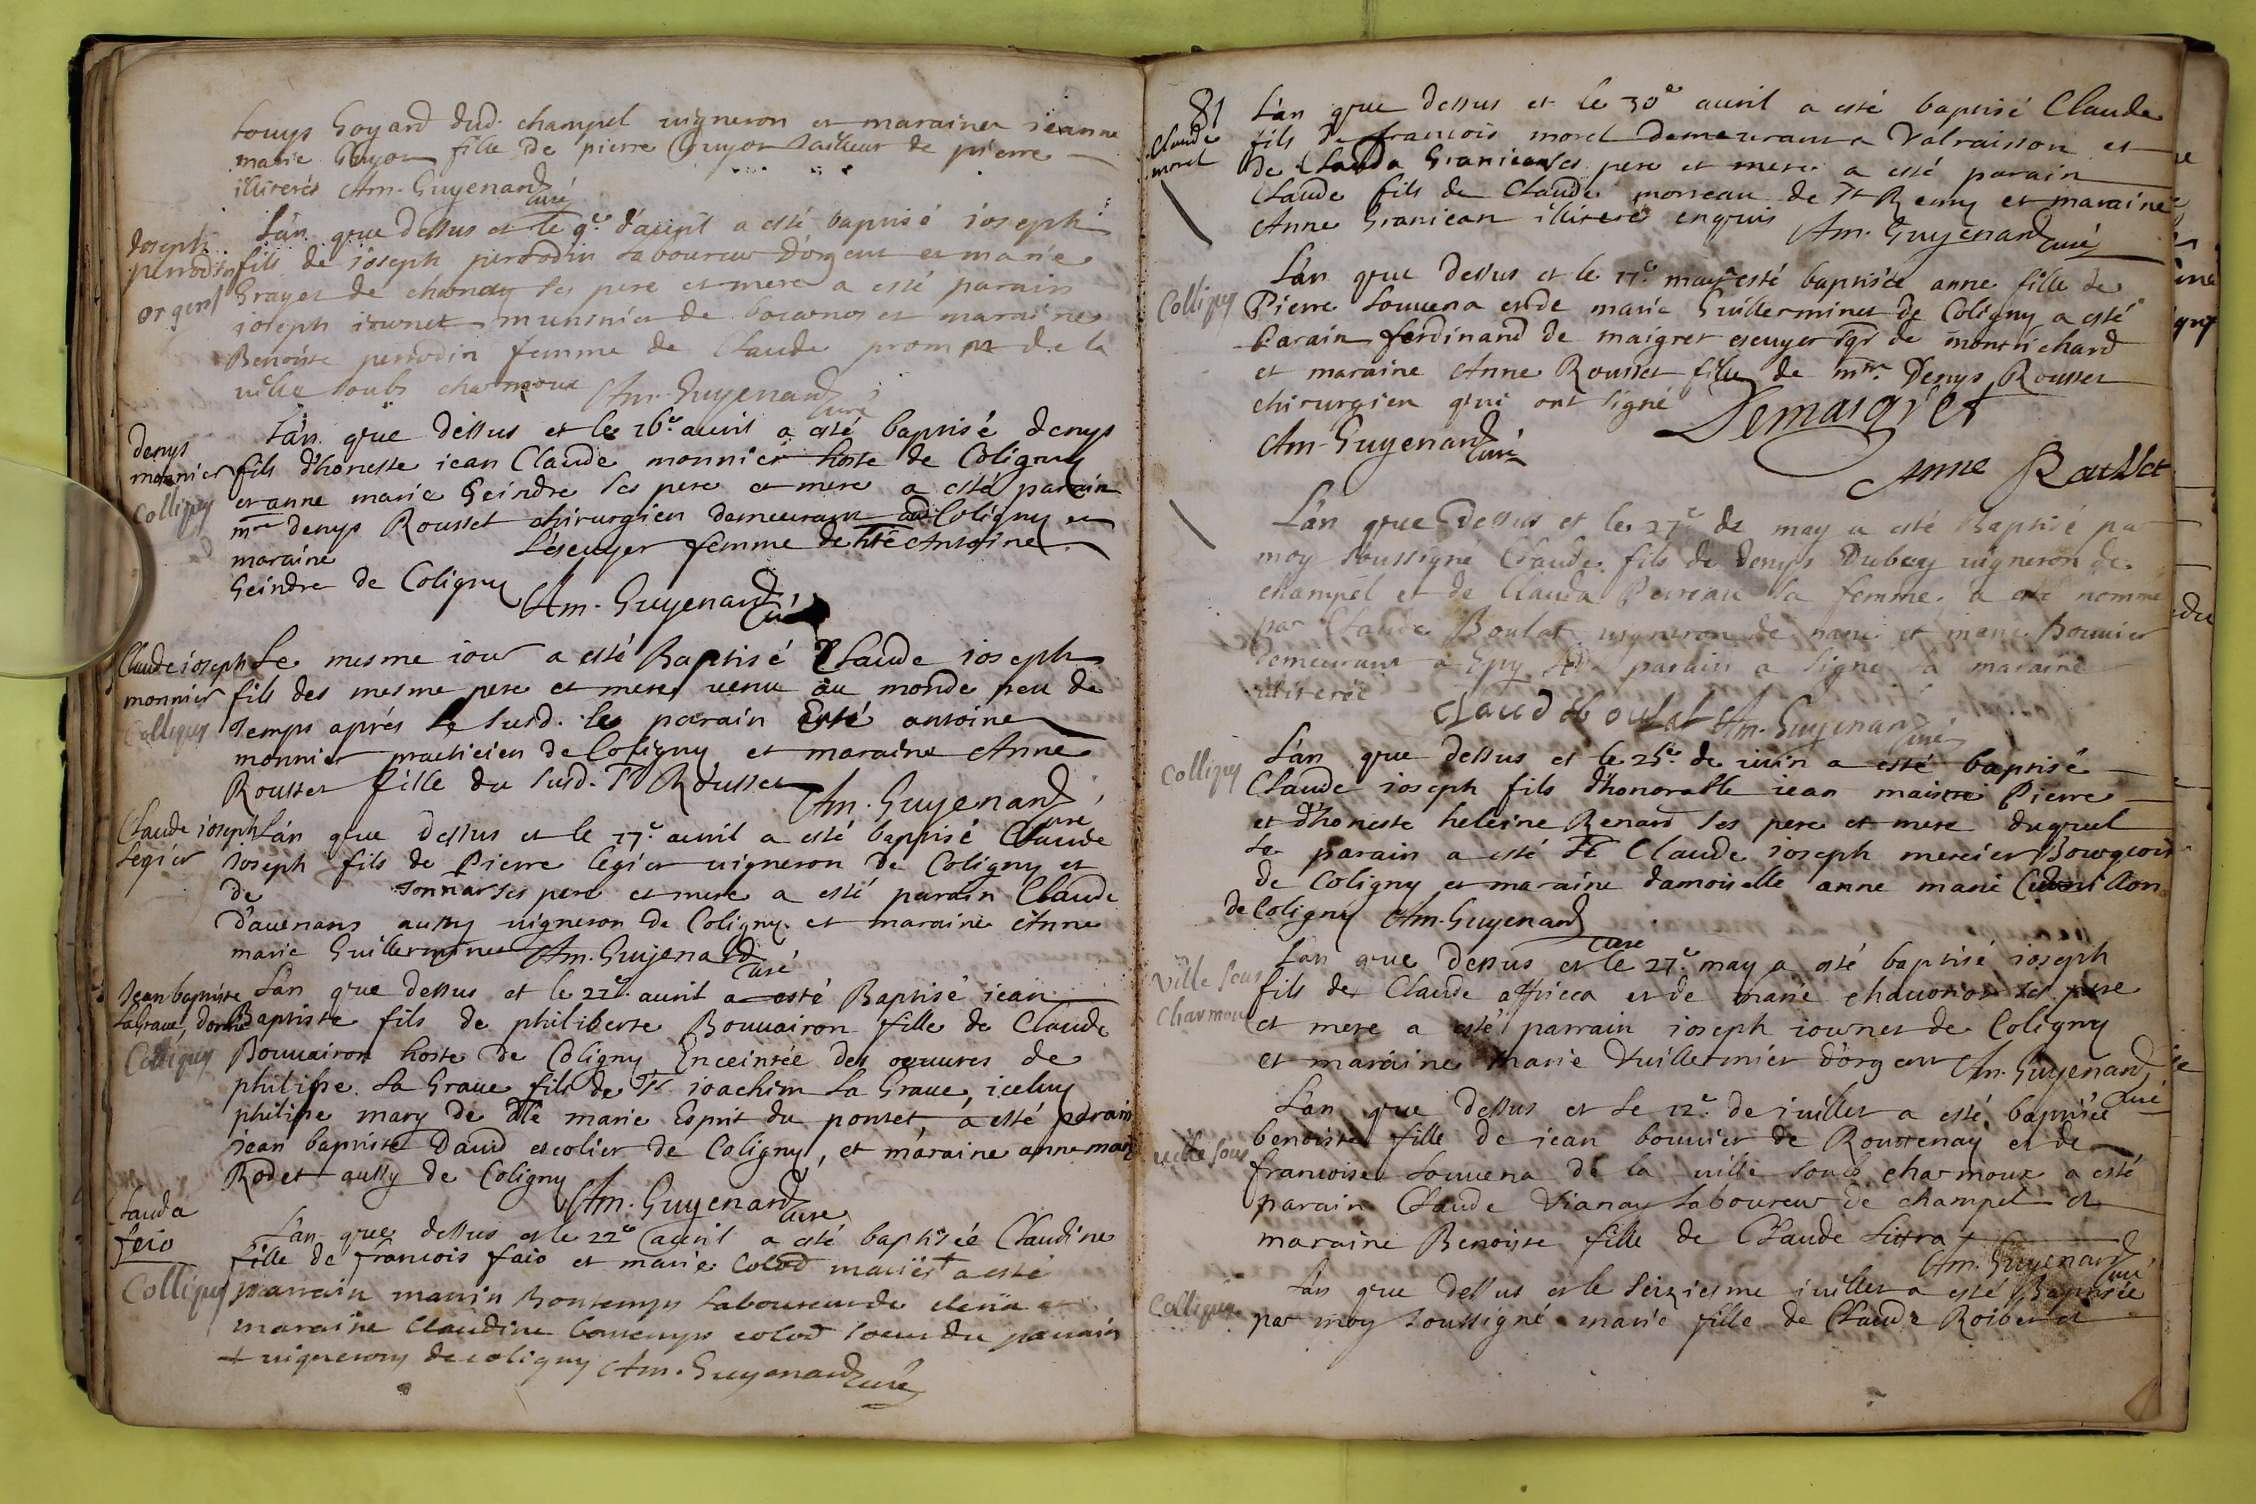 Louys Goyard dud. champel uigneron et maraine ieanne
marie Guyon fille de pierre Guyon tailleur de pierre
illiterés Am. Guyenard curé
Joseph perrodin
orgent
L'an que dessus et le 9e d'auril a esté baptisé ioseph
fils de ioseph perrodin laboureur d'orgent et marie
Grayet de chanay ses pere et mere a esté parain
ioseph iournet munsnier de bocarnos et maraine
Benoiste perrodin femme de Claude prompt de la
uille soubs charmoux Am. Guyenard curé
Denys monnier
Colligny
L'an que dessus et le 16e auril a esté baptisé denys
fils d'honeste iean Claude monnier hoste de Coligny
et anne marie Geindre ses pere et mere a esté parain
mre denys Rousset chirurgien demeurant aud Coligny et
maraine L'escuyer femme de hle Antoine
Geindre de Coligny Am. Guyenard curé
Claude ioseph monnier
Colligny
Le mesme iour a esté Baptisé Claude ioseph
fils des mesme pere et mere uenu au monde peu de
temps aprés le susd. les parain a esté antoine
monnier practicien de Coligny et maraine Anne
Rousset fille du susd. Sr Rousset Am. Guyenard curé
Claude ioseph Legier
L'an que dessus et le 17e auril a esté baptisé Claude
ioseph fils de Pierre legier uigneron de Coligny et
de Tonnar ses pere et mere a esté parain Claude
d'auenans aussy uigneron de Coligny et maraine Anne
marie Guillerminet Am. Guyenard curé
Jean baptiste LaGraue, donné
Colligny
L'an que dessus et le 22e auril a esté Baptisé iean
Baptiste fils de philiberte Bouuairon fille de Claude
Bouuairon hoste de Coligny Enceintée des oeuures de
philippe La Graue fils de Sr ioachim La Graue, iceluy
philipe mary de dlle marie Esprit du ponset, a esté parain
Jean baptiste Daud escolier de Coligny, et maraine anne marie
Rodet aussy de Coligny Am. Guyenard curé
Clauda feio
Colligny
L'an que dessus et le 22e auril a esté baptisée Claudine
fille de francois faio et marie Colod mariés + a esté
parrain marin Bontemps laboureur de
maraine Claudine bontemps colod soeur du parrain
+ uignerons de coligny Am. Guyenard curé
81
Claude morel
L'an que dessus et le 30e auril a esté baptisé Claude
fils de francois morel demeurant a Valraisson et
de Clauda Granican ses pere et mere a esté parain
Claude fils de Claude morreau de St Remy et maraine
Anne Granican illiteré enquis Am. Guyenard curé
Colligny
L'an que dessus et le 17e may a esté baptisée anne fille de
Pierre Louuena et de marie Guillerminet de Coligny a esté
Parain ferdinand de maigret escuyer sgr de montrichard
et maraine Anne Rousset fille de mre Denys Rousset
chirurgien qui ont signé Demaigret
Am. Guyenard curé
Anne Rousset
L'an que dessus et le 27e de may a esté Baptisé par
moy soussigné Claude fils de Denys Dubey uigneron de
champel et de Clauda Perreau sa femme, a esté nommé
par Claude Boulat uigneron de nanc et marie Bouuier
demeurant a Epy le parain a signé la maraine
illiterée Claud Boulat Am. Guyenard curé
Colligny
L'an que dessus et le 25e de iuin a esté baptisé
Claude ioseph fils d'honorable iean maistre Pierre
et d'honeste heleine Renard ses pere et mere duquel
Le parain a esté Sr Claude ioseph mercier Bourgeois
de Coligny et maraine damoiselle anne marie
de Coligny Am. Guyenard curé
Ville sous Charmoux
L'an que dessus et le 27e may a esté baptisé ioseph
fils de Claude affricca et de marie chauorios ses pere
et mere a esté parrain ioseph iournet de Coligny
et maraine marie Vuillermier d'orgent Am. Guyenard curé
uille sous
L'an que dessus et le 12e de iuillet a esté baptisée
benoiste fille de iean bouuier de Roustenay et de
francoise Louuena de la uille soubs charmoux a esté
parain Claude Vianay laboureur de champel et
maraine Benoiste fille de Claude Am. Guyenard curé
Colligny
L'an que dessus et le seiziesme iuillet a esté Baptisée
par moy soussigné marie fille de Claude Roiber et